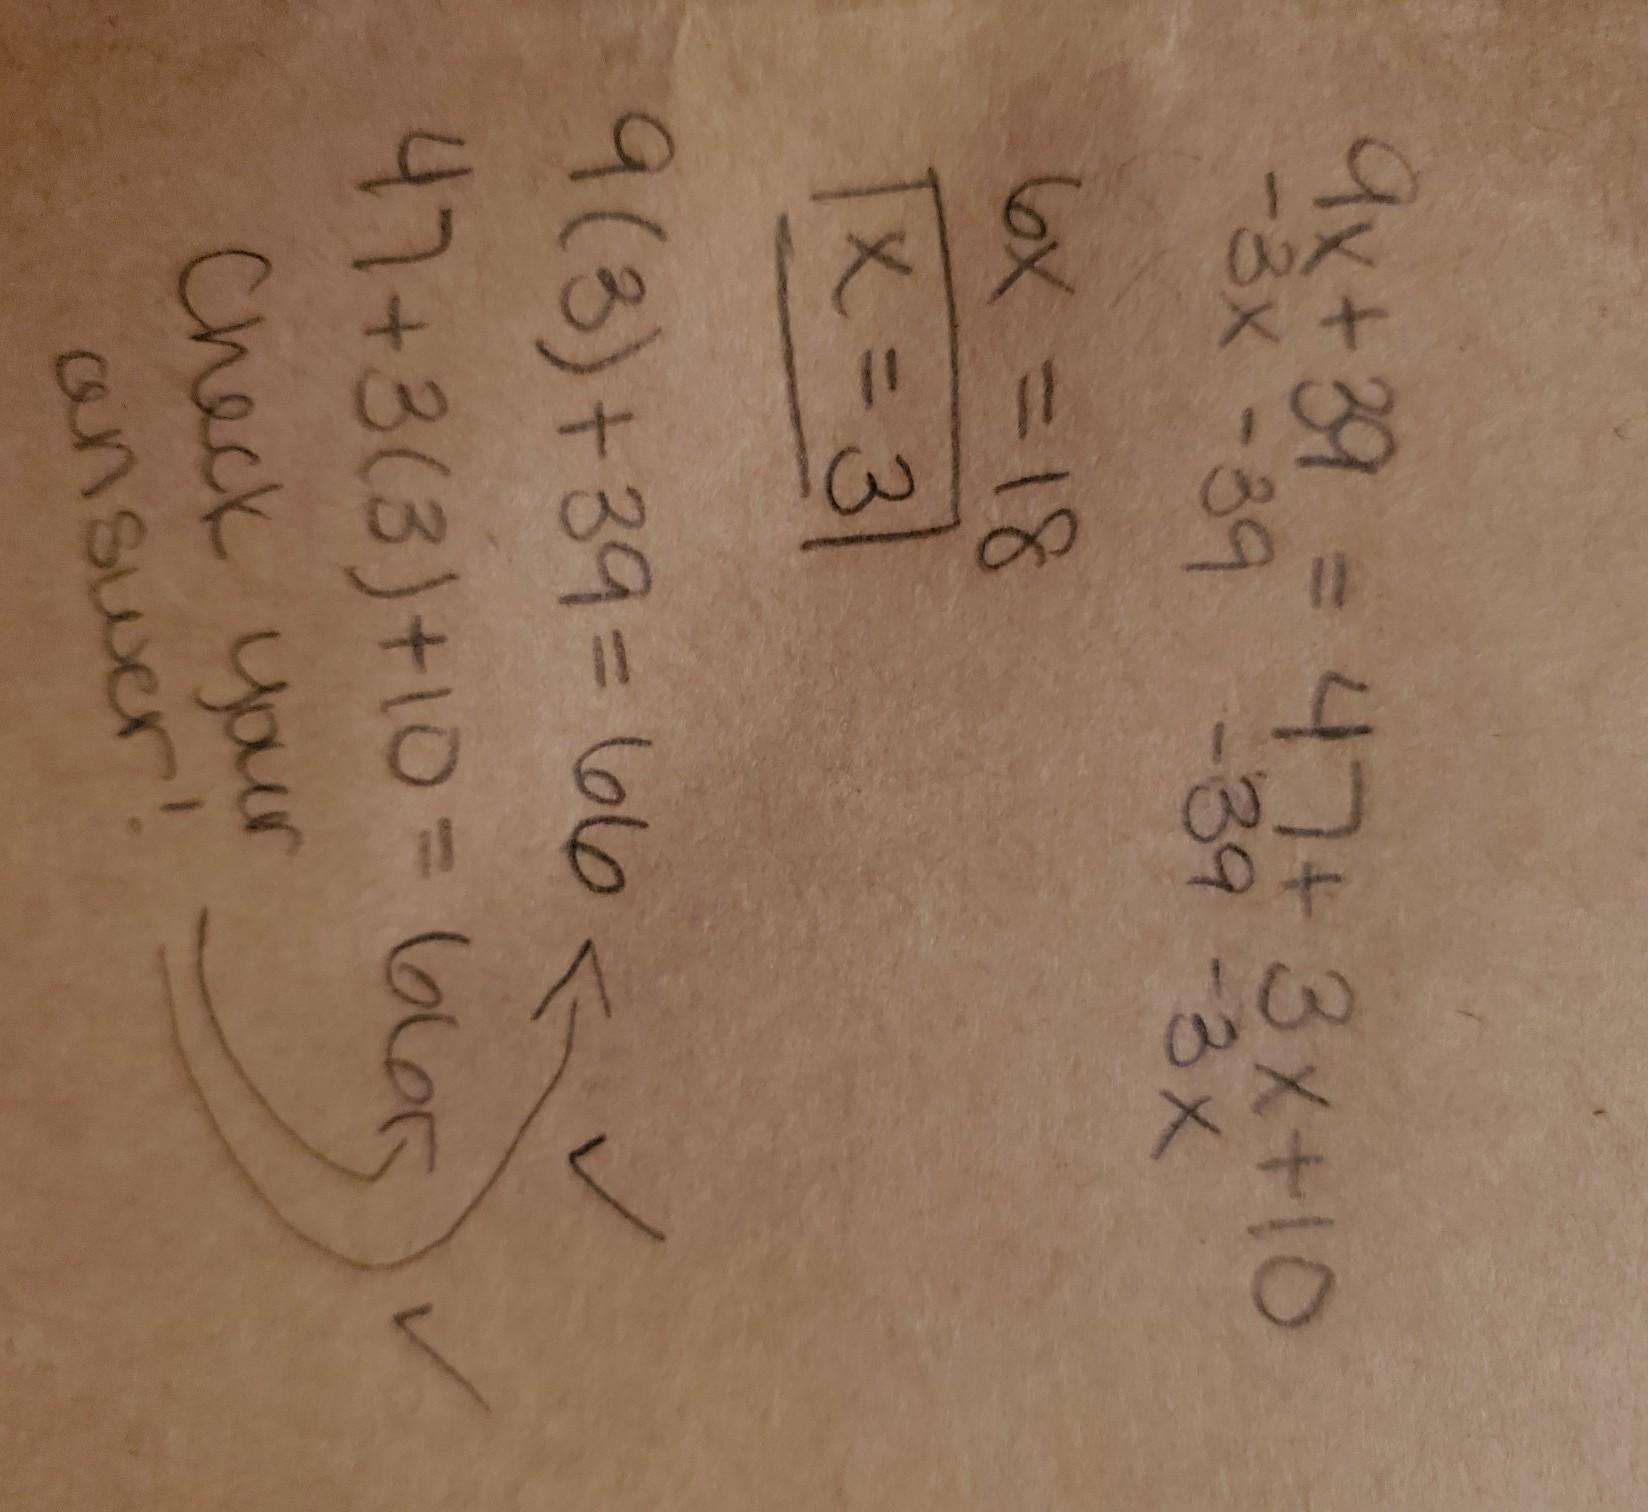 9x + 39 = 47 + 3x + 10
-3x -39 -39 -3x
6x = 18
x = 3
9(3) + 39 = 66
47 + 3(3) + 10 = 66
Check your
answer!